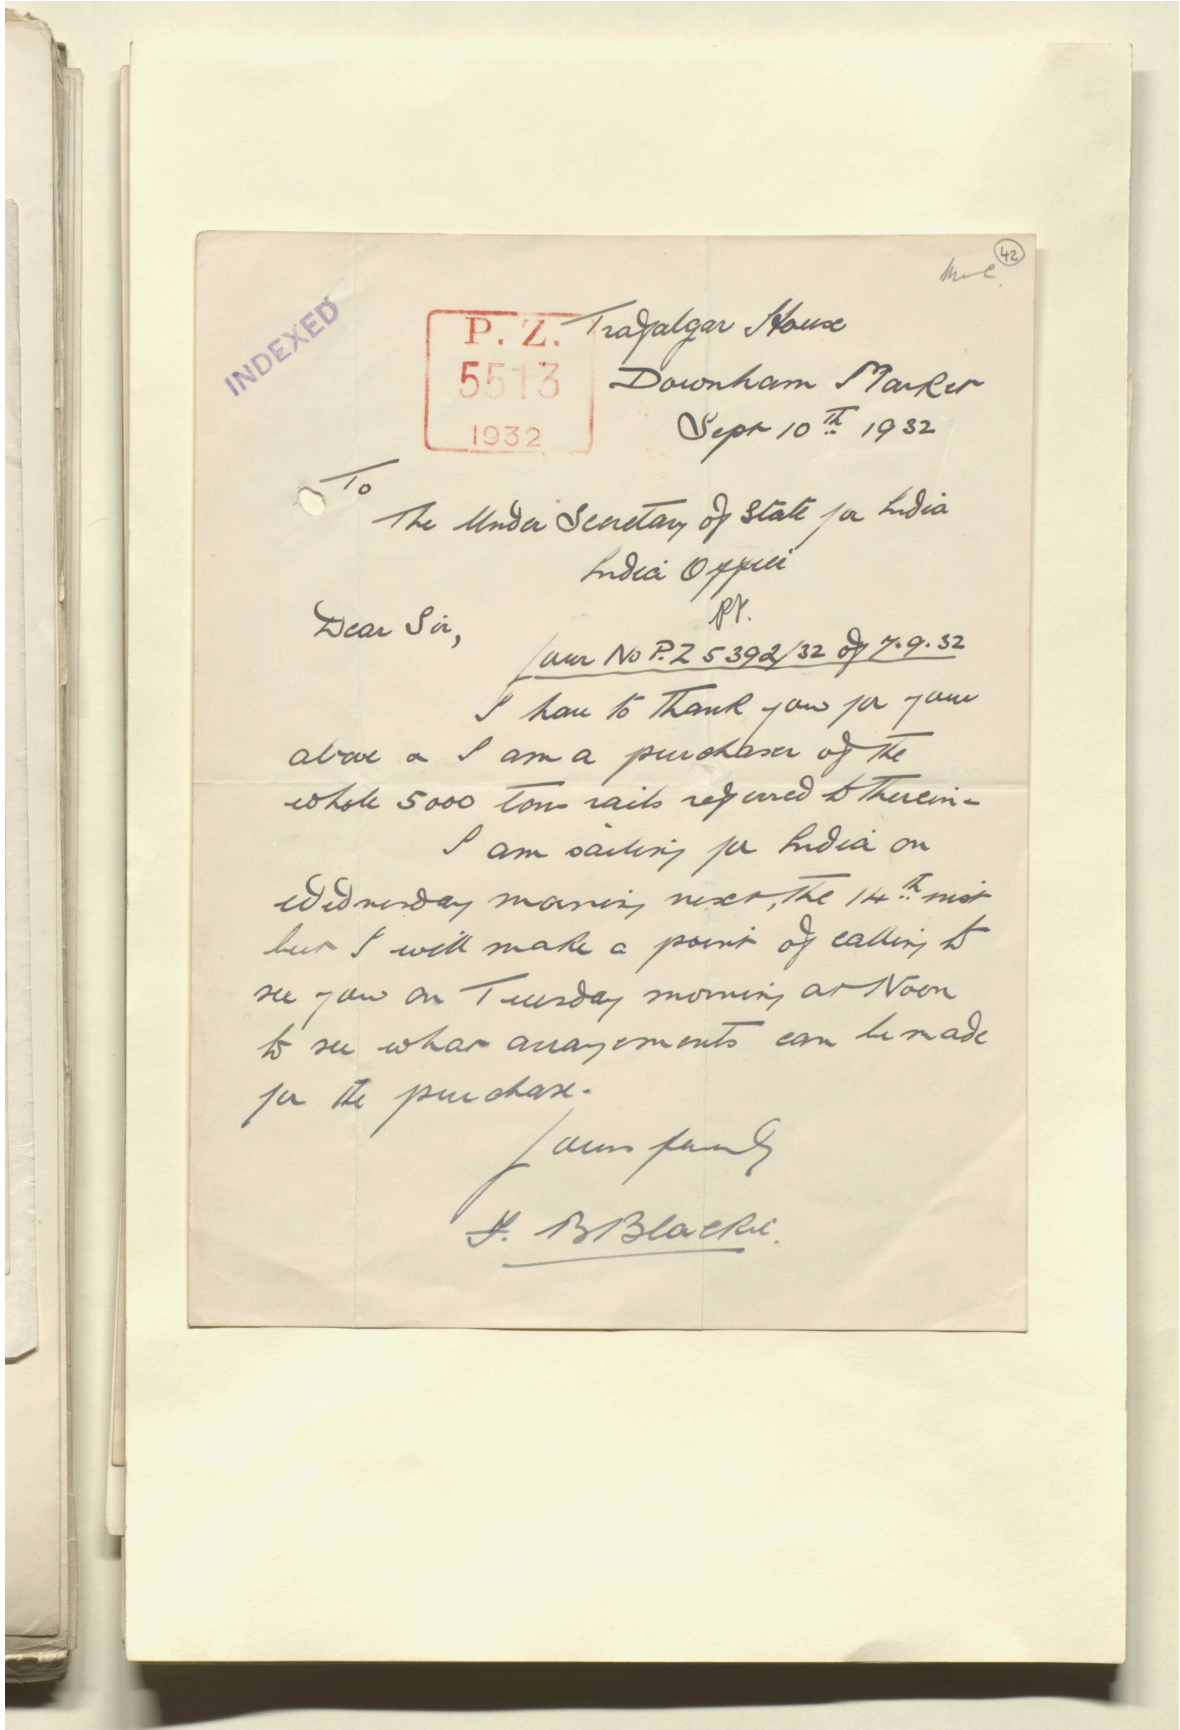 42
INDEXED
P. Z.
5513
1932
Trafalgar House
Downham Market
Sept 10th 1932
To
The Under Secretary of State for India
India Office
Dear Sir,
Your No P.Z 5392/32 of 7.9.32
I have to thank you for your
above & I am a purchaser of the
whole 5000 tons rails referred to therein-
I am sailing for India on
Wednesday morning next, the 14th inst
but I will make a point of calling to
see you on Tuesday morning at Noon
to see what arrangements can be made
for the purchase.
Yours faithfully
B Blackie.